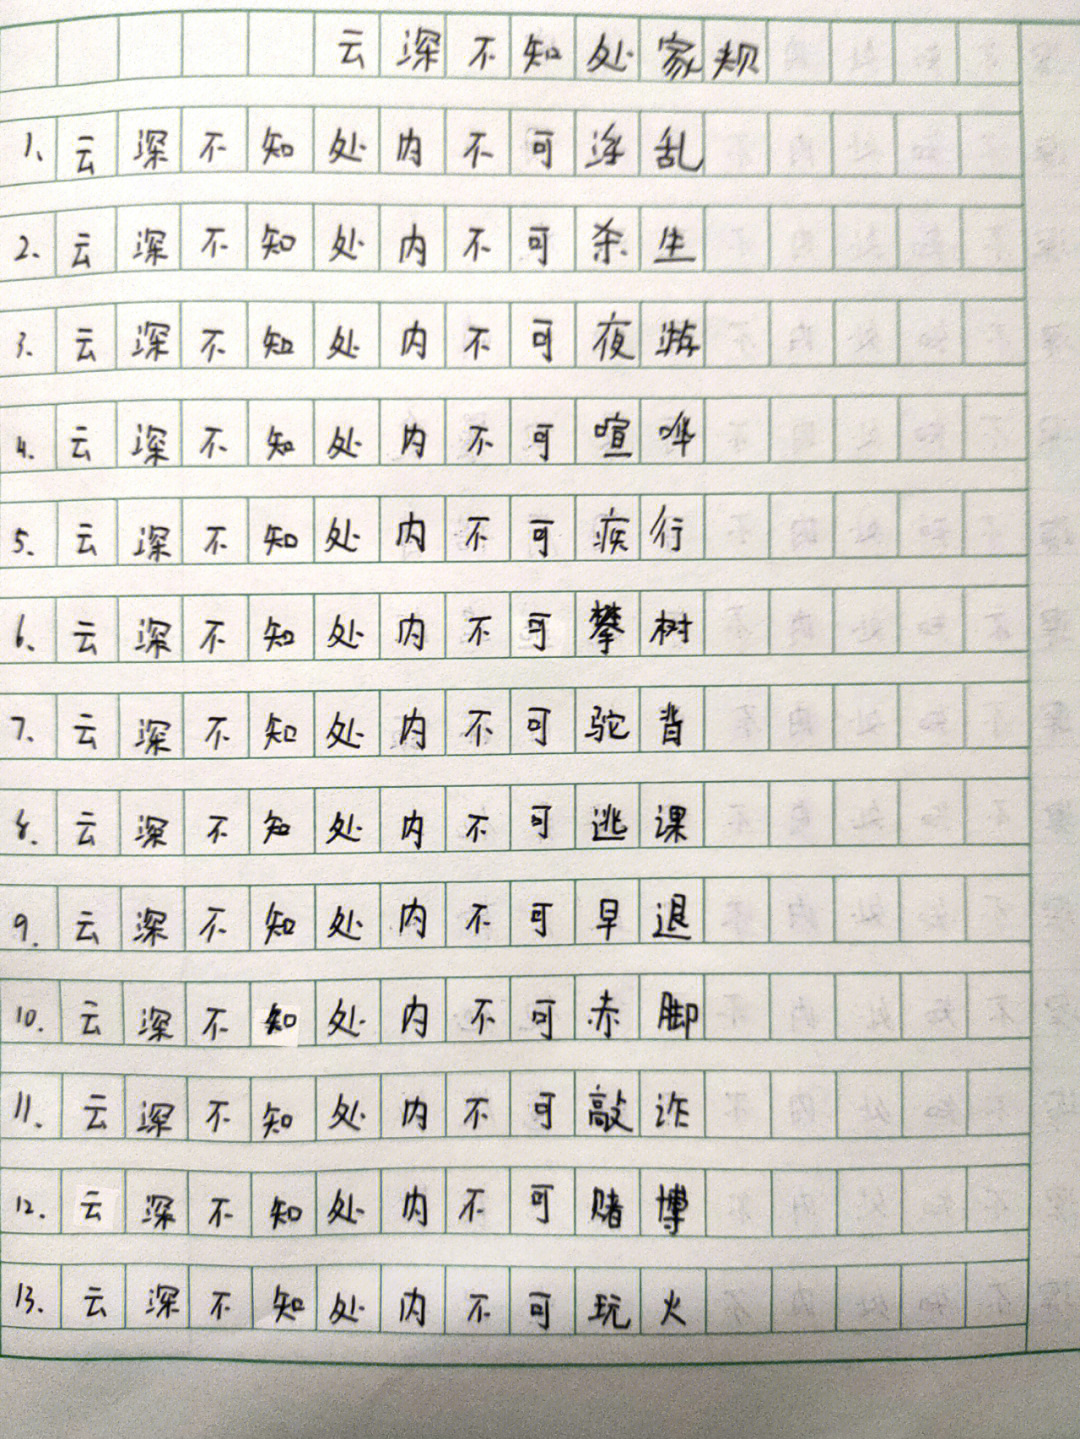 云深不知处家规
1、云深不知处内不可淫乱
2、云深不知处内不可杀生
3、云深不知处内不可夜游
4、云深不知处内不可喧哗
5、云深不知处内不可疾行
6、云深不知处内不可攀树
7、云深不知处内不可驼背
8、云深不知处内不可逃课
9、云深不知处内不可早退
10、云深不知处内不可赤脚
11、云深不知处内不可敲诈
12、云深不知处内不可赌博
13、云深不知处内不可玩火